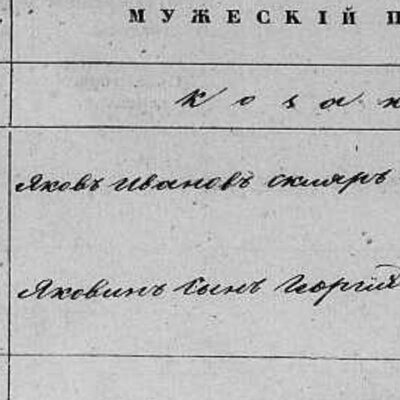 МУЖЕСКІЙ П
Козак
Яковъ Ивановъ Скляръ
Яковинъ сынъ Георгій